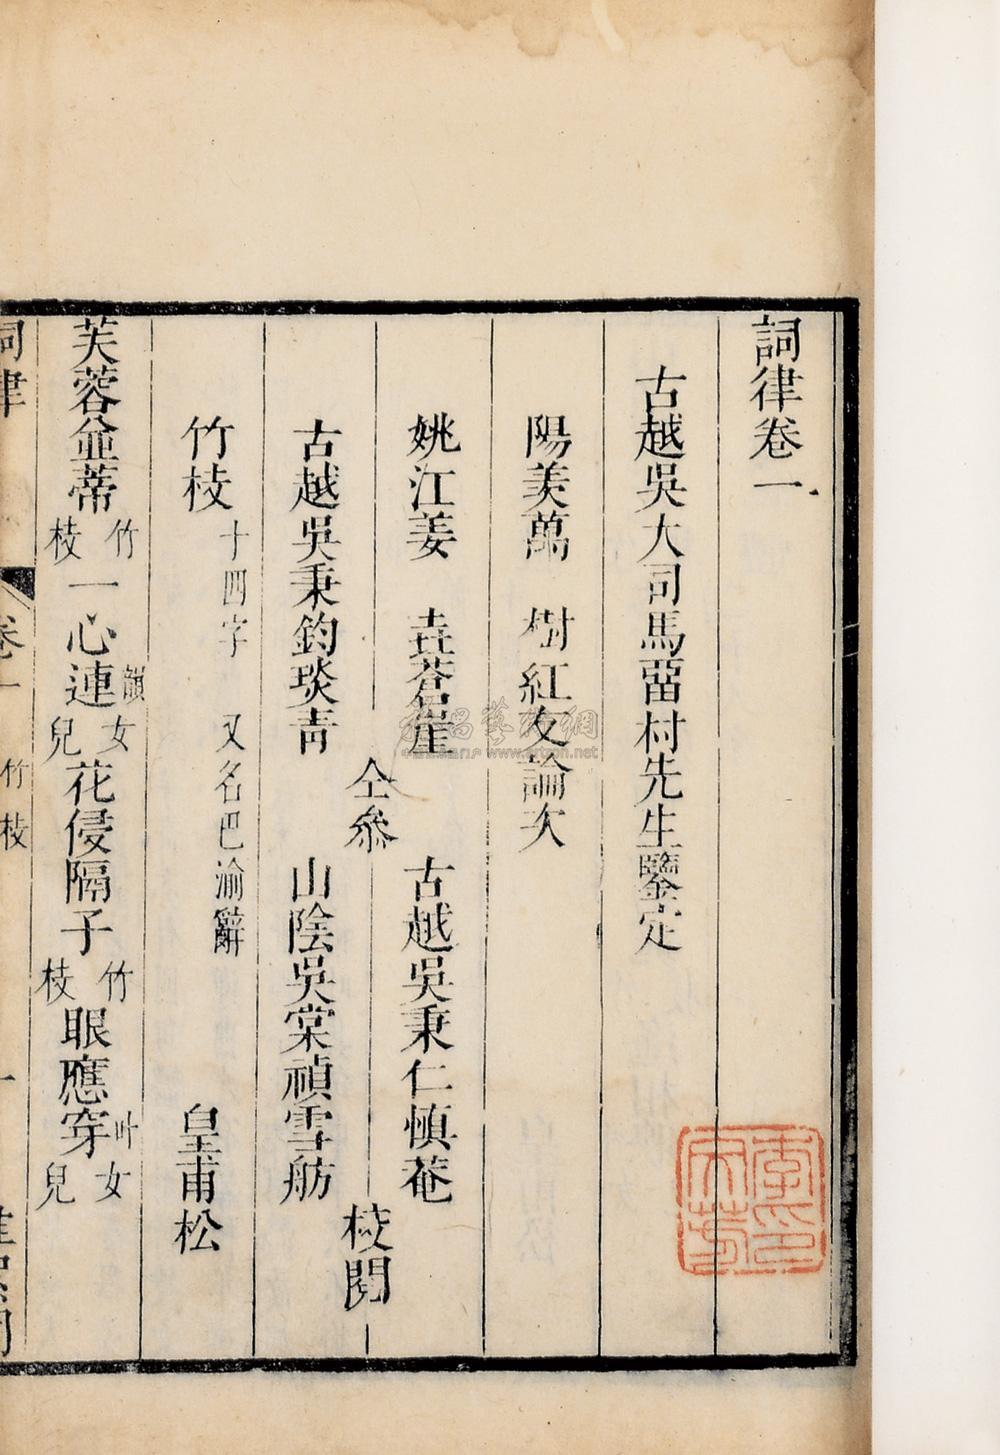 詞律卷一
古越吳大司馬畱村先生鑒定
陽羨萬 樹紅友論次
姚江姜 垚蒼崖
古越吳秉鈞琰青
仝叅
古越吳秉仁慎菴
山陰吳棠禎雪舫
校閱
竹枝 十四字 又名巴渝辭 皇甫松
芙蓉並蒂竹枝一心連韻女兒花侵隔子竹枝眼應穿叶女兒
詞律 卷一 竹枝 一
www.artron.net